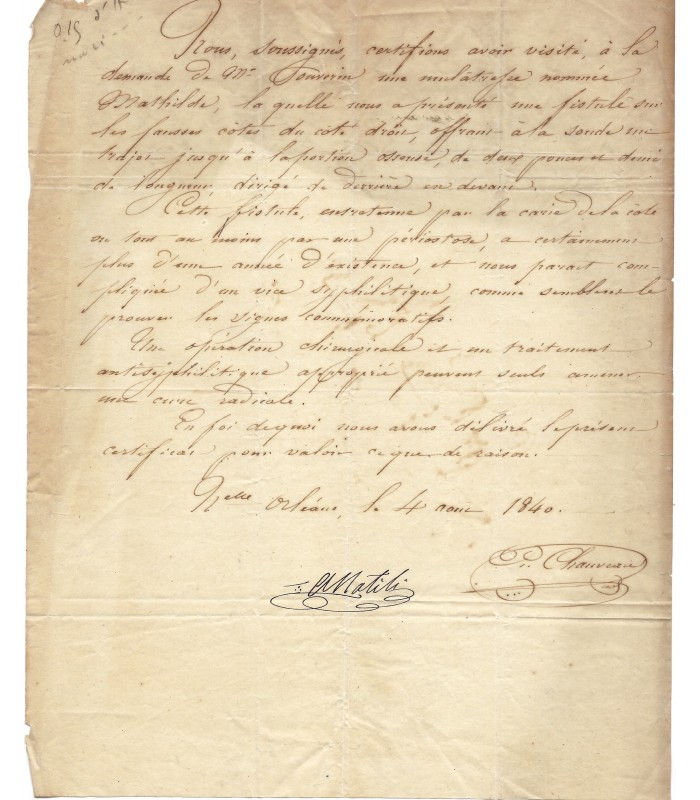 Nous, soussignés, certifions avoir visité, à la
demande de Mr Souverin une mulâtresse nommée
Mathilde, la quelle nous a présenté une fistule sur
les fausses côtes du coté droit, offrant à la sonde un
trajet jusqu'à la portion osseuse, de deux pouces et demi
de longueur, dirigé de derrière en devant.
Cette fistule, entretenue par la carie de la cote
ou tout au moins par une périostose, a certainement
plus d'une année d'existence, et nous parait com-
pliquée d'un vice syphilitique, comme semblent le
prouver les signes commémoratifs.
Une opération chirurgicale et un traitement
antisyphilitique approprié peuvent seuls amener
une cure radicale.
En foi de quoi nous avons délivré le présent
certificat pour valoir ce que de raison.
Nelle Orléans, le 4 aout 1840.
Chauveau